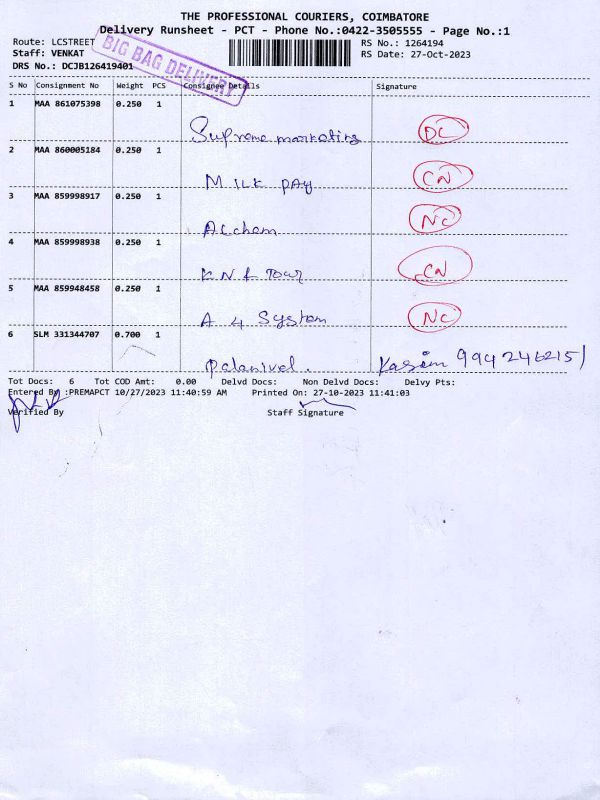 THE PROFESSIONAL COURIERS, COIMBATORE
Delivery Runsheet - PCT - Phone No.:0422-3505555 - Page No.:1
Route: LCSTREET
RS No.: 1264194
Staff: VENKAT
RS Date: 27-Oct-2023
DRS No.: DCJB126419401
BIG BAG DELIVERY
S No Consignment No Weight PCS Consignee Details Signature
1 MAA 861075398 0.250 1
Supreme marketing DC
2 MAA 860005184 0.250 1
MILK PAY CN
3 MAA 859998917 0.250 1
Alchem NC
4 MAA 859998938 0.250 1
KNK Tour CN
5 MAA 859948458 0.250 1
A 4 System NC
6 SLM 331344707 0.700 1
Palanivel. Kasim 9942462151
Tot Docs: 6 Tot COD Amt: 0.00 Delvd Docs: Non Delvd Docs: Delvy Pts:
Entered By :PREMAPCT 10/27/2023 11:40:59 AM Printed On: 27-10-2023 11:41:03
Verified By Staff Signature